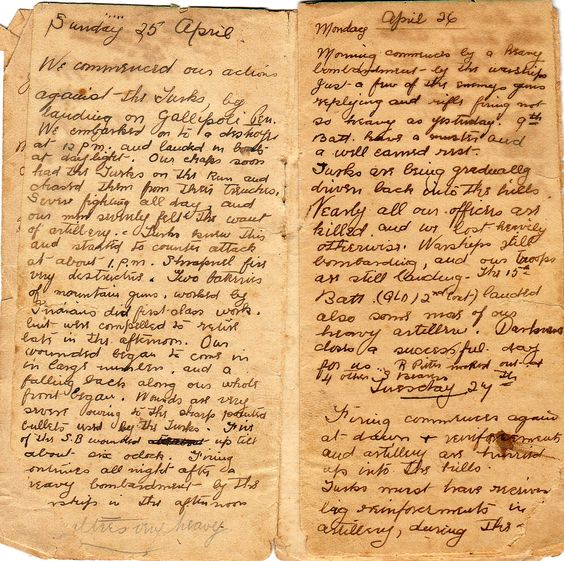 Sunday 25 April.
We commenced our actions
against the Turks, by
landing on Gallipoli Pen.
We embarked on to a
at 12 p.m. and landed in boats
at daylight. Our chaps soon
had the Turks on the Run and
chased them from their trenches,
Severe fighting all day, and
our men severely felt the want
of artillery. Turks knew this
and started to counter attack
at about 1 p.m. Shrapnell fire
very destructive. Two batteries
of mountain guns, worked by
Indians did first class work,
but were compelled to retire
late in the afternoon. Our
wounded began to come in
in large numbers, and a
falling back along our whole
front began. Wounds are very
severe owing to the sharp pointed
bullets used by the Turks. Five
of the S.B wounded up till
about six oclock. Firing
ontinues all night after a
heavy bombardment by the
rships in the afternoon
heavy
Monday April 26
Morning commences by a heavy
bombardment by the warships
Just a few of the enemys guns
replying and rifle firing not
so heavy as yesterday. 9th
Batt. have a muster and
a well earned rest.
Turks are being gradually
driven back into the hills.
Nearly all our officers are
killed, and we lost heavily
otherwise. Warships still
bombarding, and our troops
are still landing. The 15th
Batt. (Qld) 2nd Cont) landed
also some more of our
heavy artillery. Darkness
closes a successful day
for us. R Pitts knocked out +
4 other Bearers
Tuesday 27th
Firing commences again
at dawn + reinforcements
and artillery are hurried
up into the hills.
Turks must have received
big reinforcements in
artillery, during the